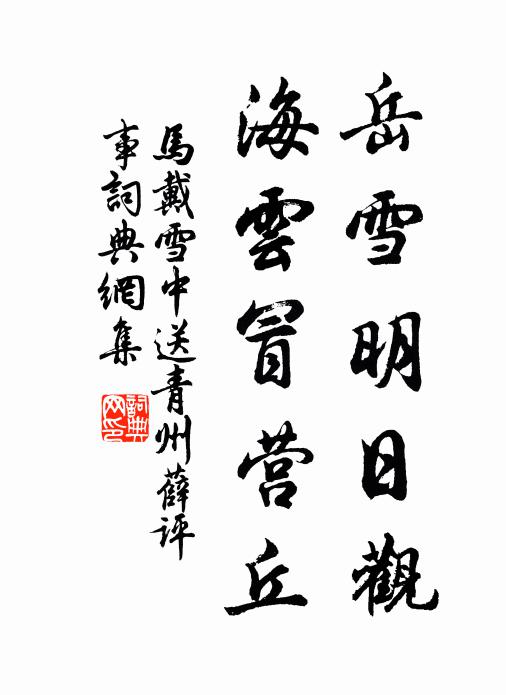 岳雪明日觀
海雲冒营丘
馬戴雪中送青州薛評
事詞典網集
詞典
网印